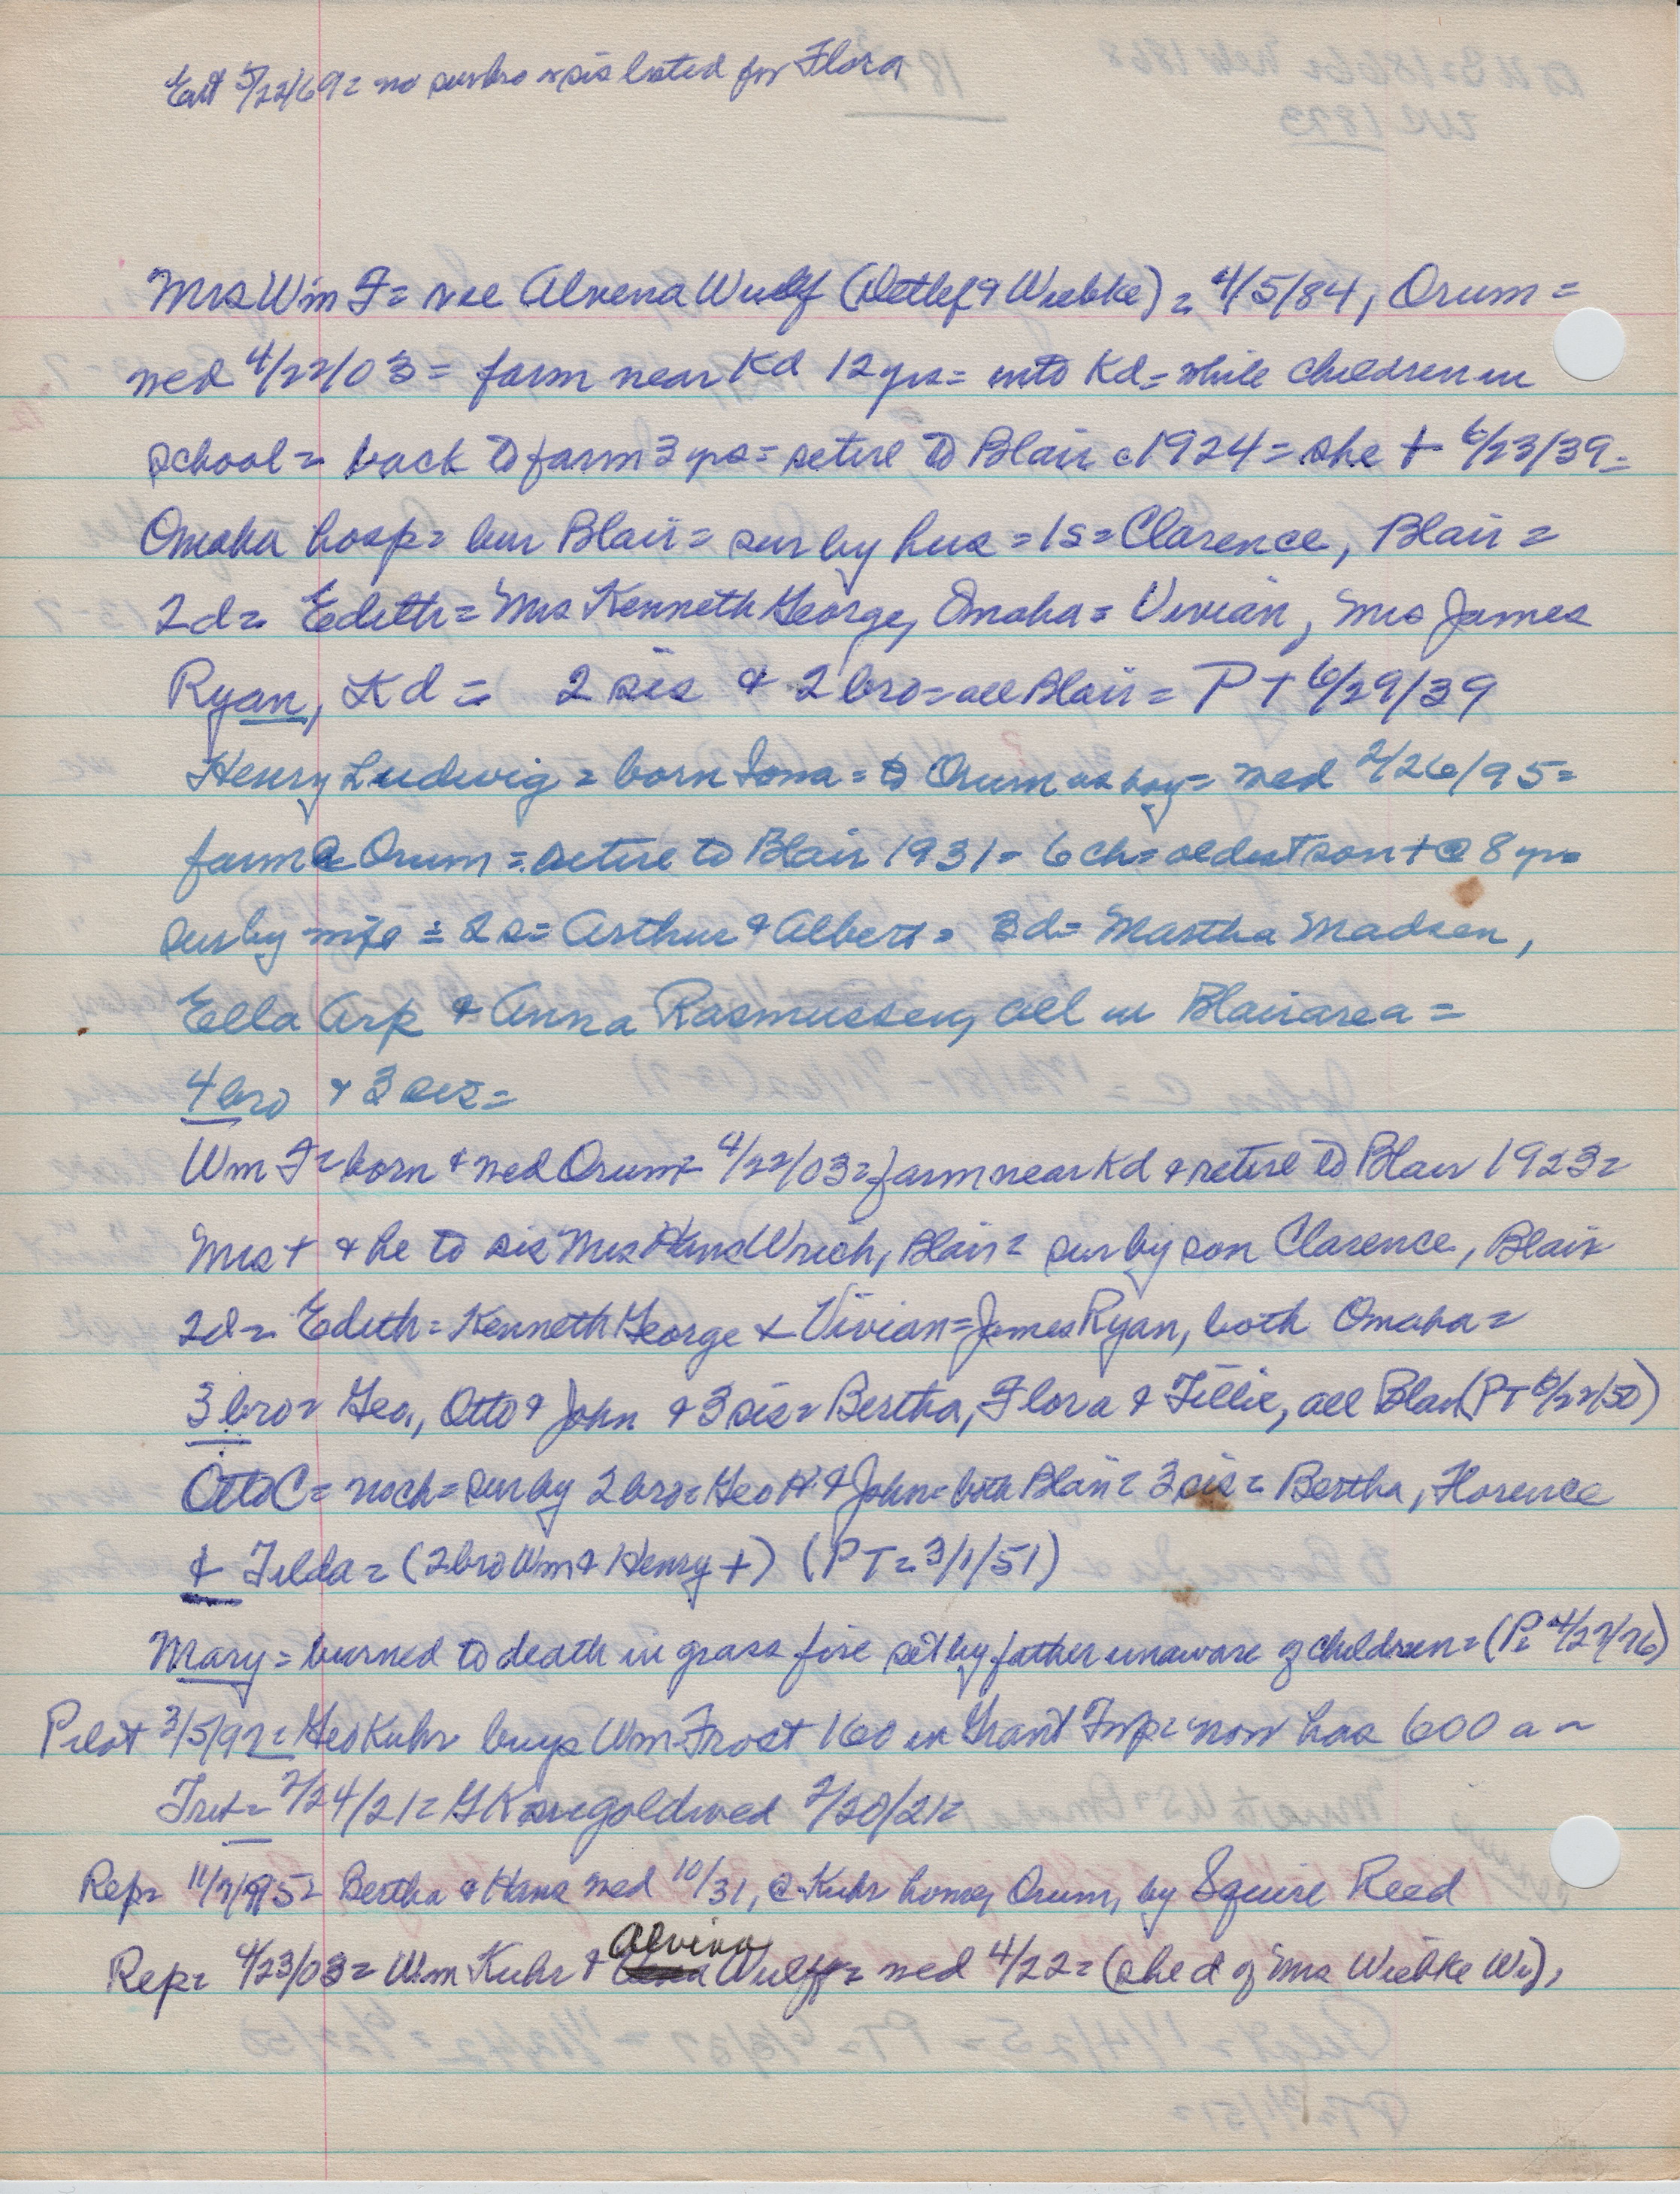 Ent 5/22/69= no sur bro or sis listed for Flora
Mrs Wm F= nee Alvena Wulff (Detlef & Wiebke)= 4/5/84, Orum=
wed 4/22/03= farm near Kd 12 yrs= into Kd= while children in
school= back to farm 3 yrs= retire to Blair c1924= she + 6/23/39=
Omaha hosp= bur Blair= sur by hus= 1s= Clarence, Blair=
2d= Edith= Mrs Kenneth George, Omaha= Vivian, Mrs James
Ryan, Kd= 2 sis & 2 bro= all Blair= PT 6/29/39
Henry Ludwig= born Iowa= to Orum as boy= wed 2/26/95=
farm @ Orum= retire to Blair 1931= 6 ch= oldest son + @ 8 yrs
sur by wife= 2s= Arthur & Albert= 3d= Martha Madsen,
Ella Arp & Anna Rasmussen, all in Blair area=
4 bro & 3 sis=
Wm F= born & wed Orum= 4/22/03= farm near Kd & retire to Blair 1923=
Mrs + & he to sis Mrs Hans Wrich, Blair= sur by son Clarence, Blair
2d= Edith= Kenneth George & Vivian= James Ryan, both Omaha=
3 bro= Geo, Otto & John & 3 sis= Bertha, Flora & Tillie, all Blair (PT 6/22/50)
Otto C= no ch= sur by 2 bro= Geo H. & John= both Blair= 3 sis= Bertha, Florence
& Tilda= (2 bro Wm & Henry +) (PT= 3/1/51)
Mary= burned to death in grass fire set by father unaware of children= (P= 4/27/76)
Pilot 3/5/92= Geo Kuhr buys Wm Frost 160 in Grant Twp= now has 600 a
Trib= 2/24/21= GK sr goldwed 2/20/21=
Rep= 11/7/95= Bertha & Hans wed 10/31, @ Kuhr home, Orum, by Squire Reed
Rep= 4/23/03= Wm Kuhr & Alvina Wulff= wed 4/22= (she d of Mrs Wiebke Wu),